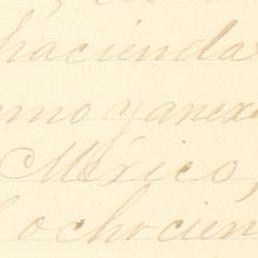 hacienda
smo y anex
México,
l ochocien